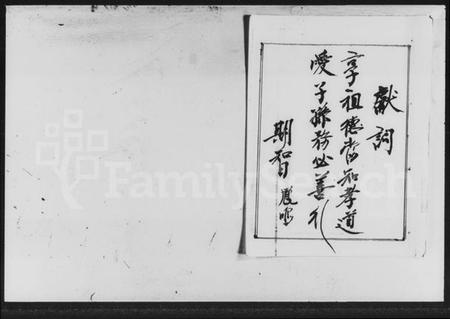 獻詞
享祖德當知孝道
愛子孫務必善礼
期智
FamilySearch